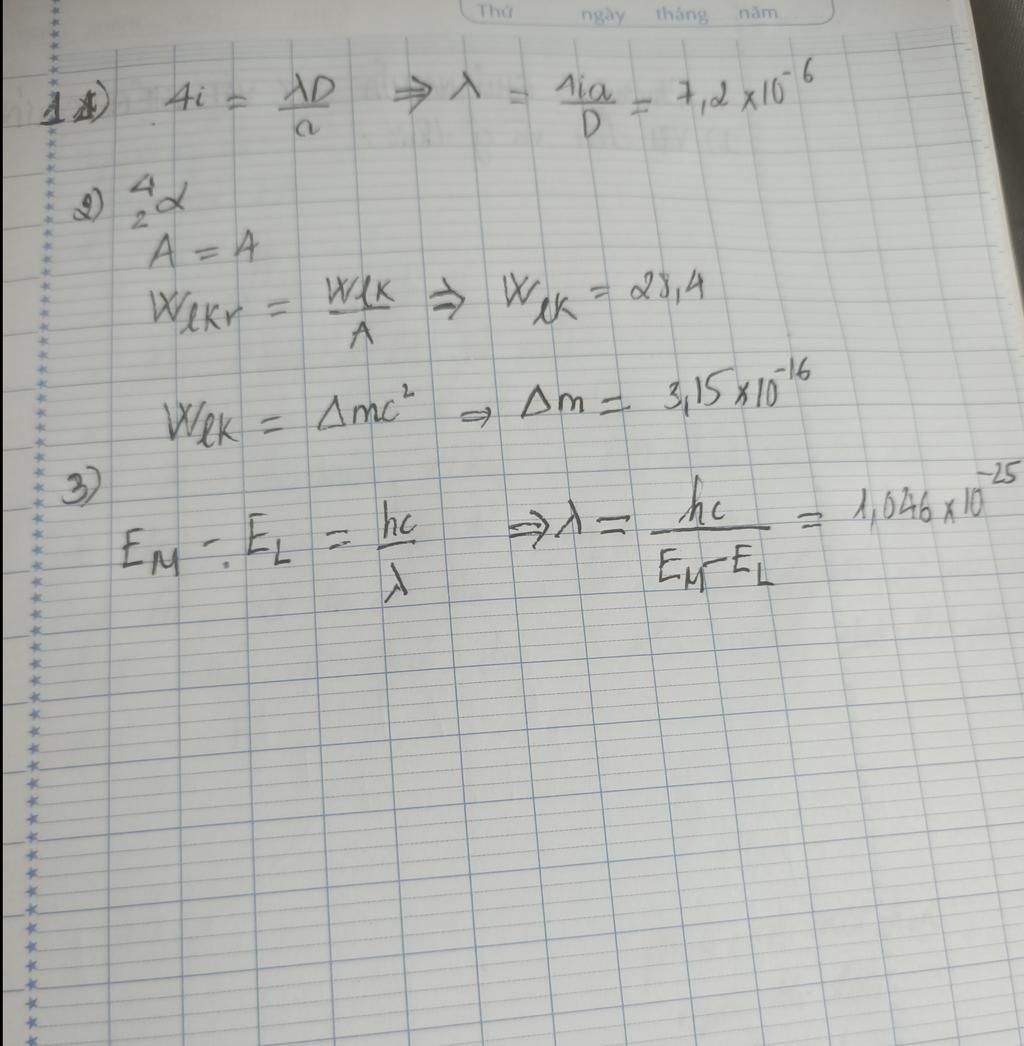 Thứ ngày tháng năm
1) 4i = λD/a ⇒ λ = 4ia/D = 7,2 × 10⁻⁶
2) ⁴₂α
A = 4
Wlkr = Wlk/A ⇒ Wlk = 28,4
Wlk = Δmc² ⇒ Δm = 3,15 × 10⁻¹⁶
3)
E_M - E_L = hc/λ ⇒ λ = hc/(E_M - E_L) = 1,046 × 10⁻²⁵